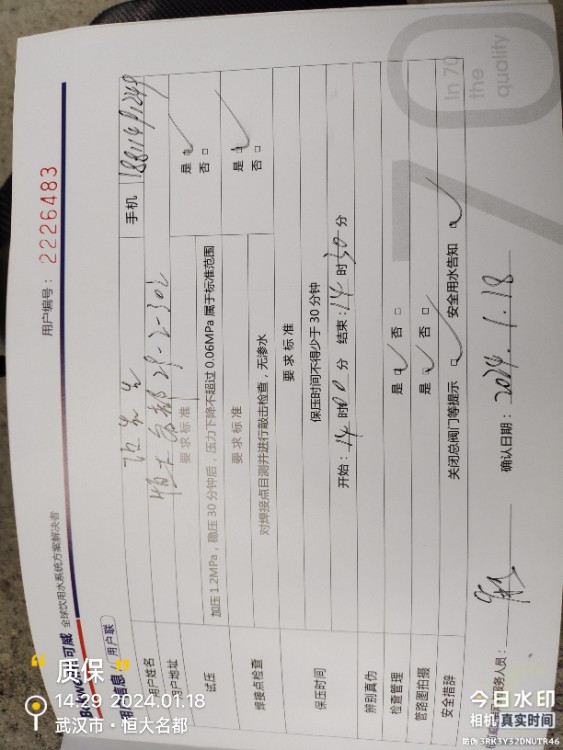 可威 全球饮用水系统方案解决者
用户编号：2226483
用户信息 / 用户联
用户姓名
手机 18811491249
用户地址 恒大名都 29-2-302
试压
要求标准
加压1.2MPa，稳压30分钟后，压力下降不超过0.06MPa属于标准范围
是 ✓
否 □
焊接点检查
要求标准
对焊接点目测并进行敲击检查，无渗水
是 ✓
否 □
保压时间
要求标准
保压时间不得少于30分钟
开始：14时00分 结束：14时30分
辨别真伪
检查管理 是 ✓ 否 □
管路图拍摄 是 ✓ 否 □
安全措辞 关闭总阀门等提示 ✓ 安全用水告知 ✓
服务人员：
确认日期：2024.1.18
70
In 70
the
quality
质保
14:29 2024.01.18
武汉市·恒大名都
今日水印
相机 真实时间
防伪 3RK3Y32DNUTR46